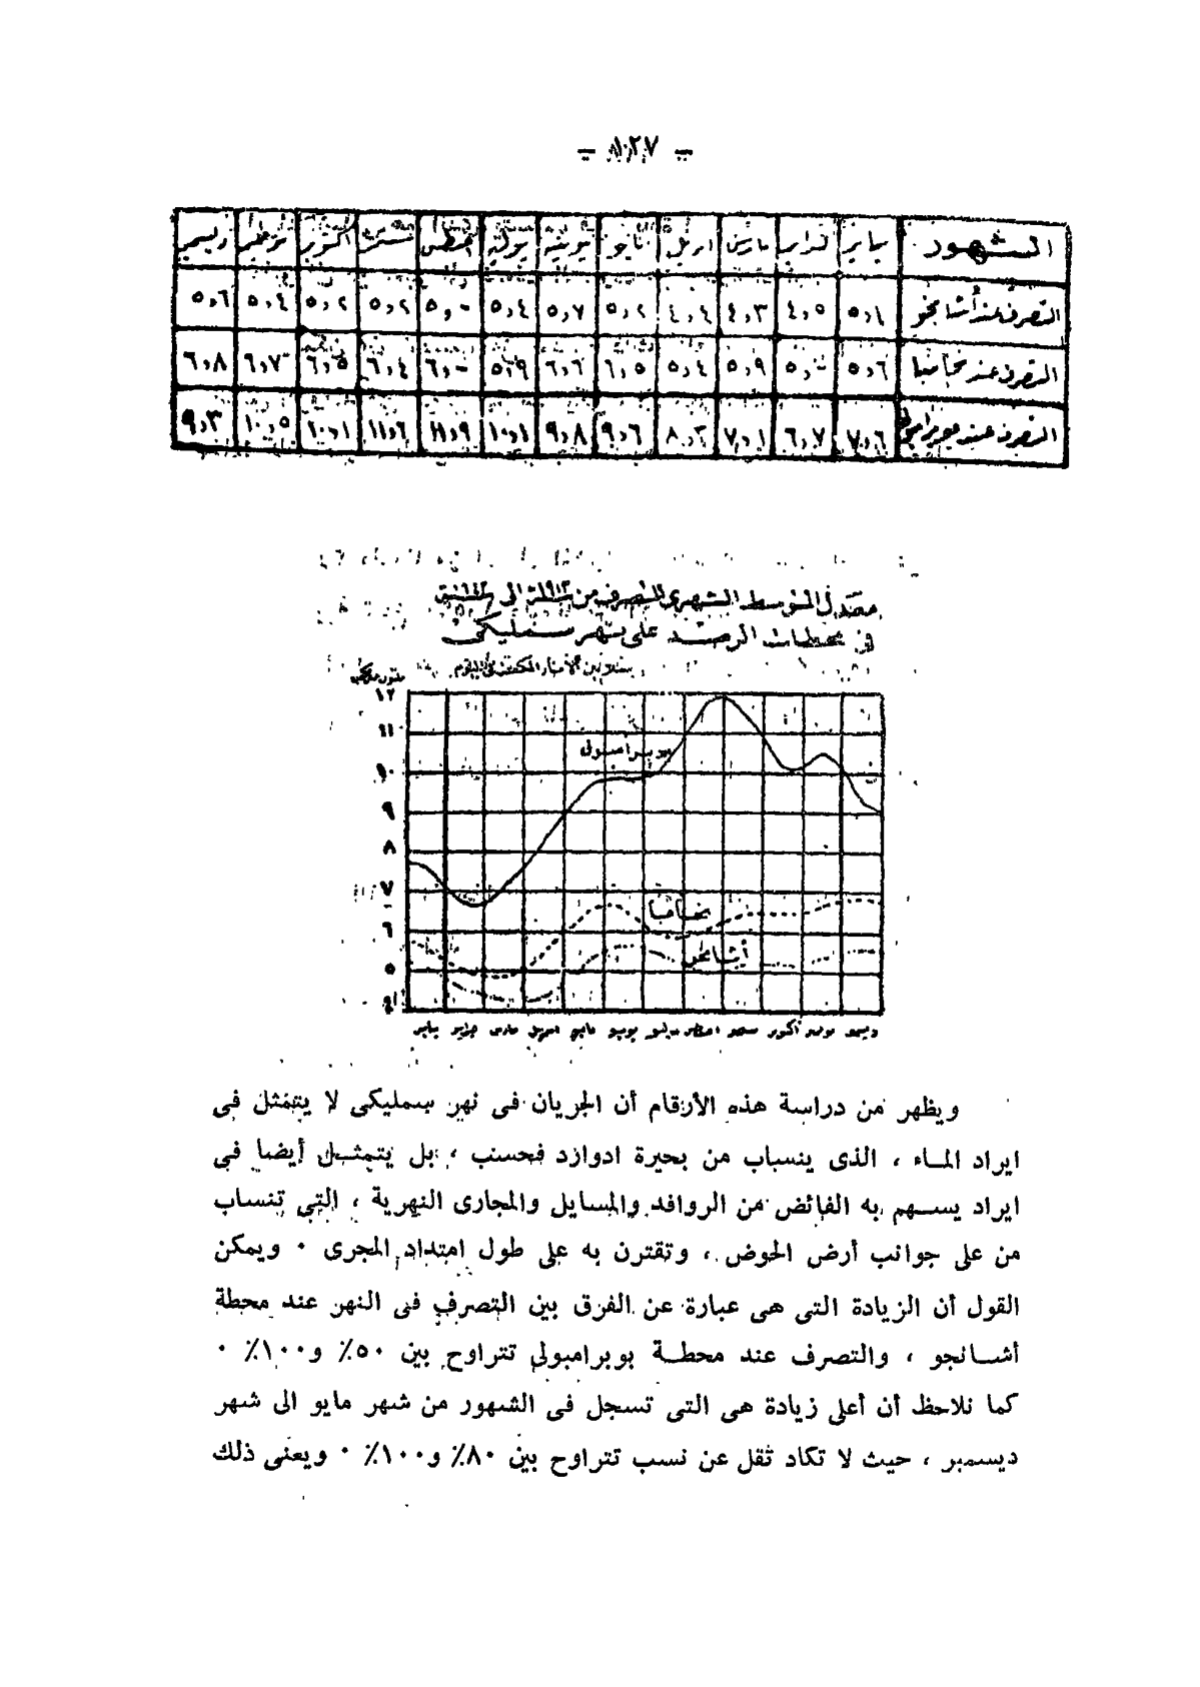 – ١٢٧ –
الشهور يناير فبراير مارس ابريل مايو يونيه يوليه أغسطس سبتمبر اكتوبر نوفمبر ديسمبر
التصرف عند أشانجو ٥٫١ ٤٫٥ ٤٫٣ ٤٫٤ ٥٫٢ ٥٫٧ ٥٫٤ ٥٫٠ ٥٫٢ ٥٫٢ ٥٫٤ ٥٫٦
التصرف عند ٥٫٦ ٥٫٠ ٥٫٩ ٥٫٤ ٦٫٥ ٦٫٦ ٥٫٩ ٦٫٠ ٦٫٤ ٦٫٥ ٦٫٧ ٦٫٨
التصرف عند ٧٫٦ ٦٫٧ ٧٫١ ٨٫٢ ٩٫٦ ٩٫٨ ١٠٫١ ١١٫٩ ١١٫٦ ١٠٫١ ١٠٫٥ ٩٫٣
معدل المتوسط الشهرى للتصرف من سنة الى سنة
فى محطات الرصد على نهر سمليكى
١٢
١١
١٠
٩
٨
٧
٦
٥
يناير فبراير مارس ابريل مايو يونيو يوليو اغسطس سبتمبر أكتوبر نوفمبر ديسمبر
ويظهر من دراسة هذه الأرقام أن الجريان فى نهر سمليكى لا يتمثل فى
ايراد المـاء ، الذى ينساب من بحيرة ادوازد فحسب ، بل يتمثـل أيضا فى
ايراد يســهم به الفائض من الروافد والمسايل والمجارى النهرية ، التى تنساب
من على جوانب أرض الحوض ، وتقترن به على طول امتداد المجرى . ويمكن
القول أن الزيادة التى هى عبارة عن الفرق بين التصرف فى النهر عند محطة
أشـانجو ، والتصرف عند محطـة بوبرامبولى تتراوح بين ٥٠٪ و١٠٠٪ .
كما نلاحظ أن أعلى زيادة هى التى تسجل فى الشهور من شهر مايو الى شهر
ديسمبر ، حيث لا تكاد تقل عن نسب تتراوح بين ٨٠٪ و١٠٠٪ . ويعنى ذلك